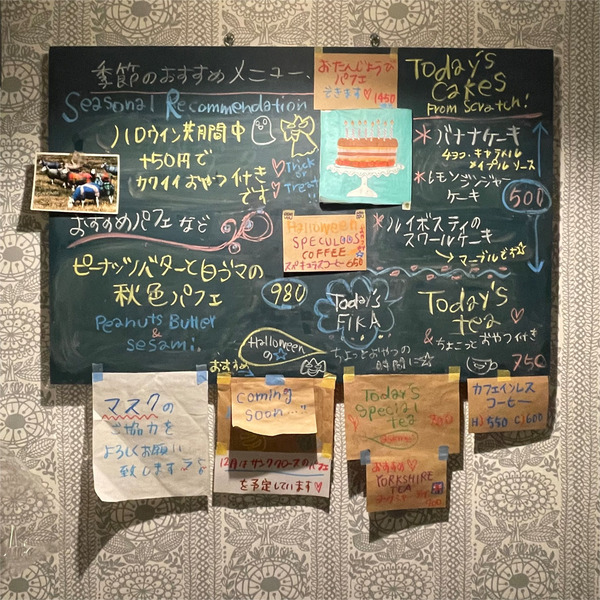 季節のおすすめメニュー、
Seasonal Recommendation
ハロウィン期間中
+50円で
カワイイおやつ付き
です
Trick
or
Treat
おすすめパフェなど
ピーナッツバターと白ゴマの
秋色パフェ
980
Peanuts Butter
& sesami.
おたんじょうび
パフェ
できます♡
1450
Halloween
SPECULOOS
COFFEE
スペキュラスコーヒー 650
Today's
Cakes
From Scratch!
*バナナケーキ
チョコ・キャラメル
メイプルソース
*レモンジンジャー
ケーキ
500
*ルイボスティの
スワールケーキ
→マーブルです☆
Today's
FIKA
ちょっとおやつの
時間に☆
Today's
tea
&ちょこっとおやつ付き
750
おすすめ
Halloween
の☆
マスクの
ご協力を
よろしくお願い
致します
coming
soon..."
12月は
を予定しています♡
Today's
Special
tea
おすすめ♡
YORKSHIRE
TEA
カフェインレス
コーヒー
H) 550 C) 600